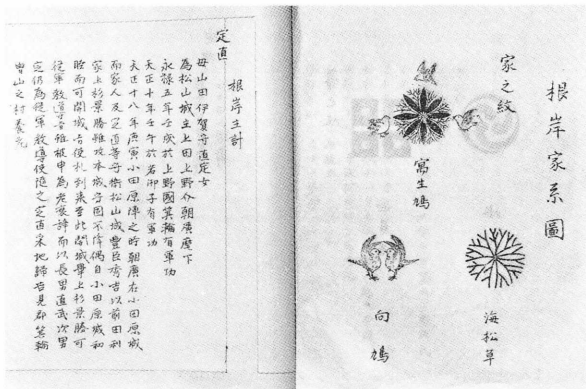 根岸家系圖
家之紋
寫生鳩
海松草
向鳩
根岸主計
定直
毋山田伊賀守直定女
為松山城主上田上野介朝廣麾下
永祿五年壬戌於上野國箕輪有軍功
天正十年壬午於若御子有軍功
天正十八年庚寅小田原陣之時朝廣在小田原城
而家人及定直等守衛松山城豐臣秀吉以前田利
家上杉景勝雖攻本城守固不降偶自小田原城和
睦而可開城旨使札到来至此開城畢上杉景勝可
從軍教導旨雖被申為老衰辞而以長男直武次男
定仍為從軍教導使随之定直采地蹄吉見郡箕輪
冑山之村養老